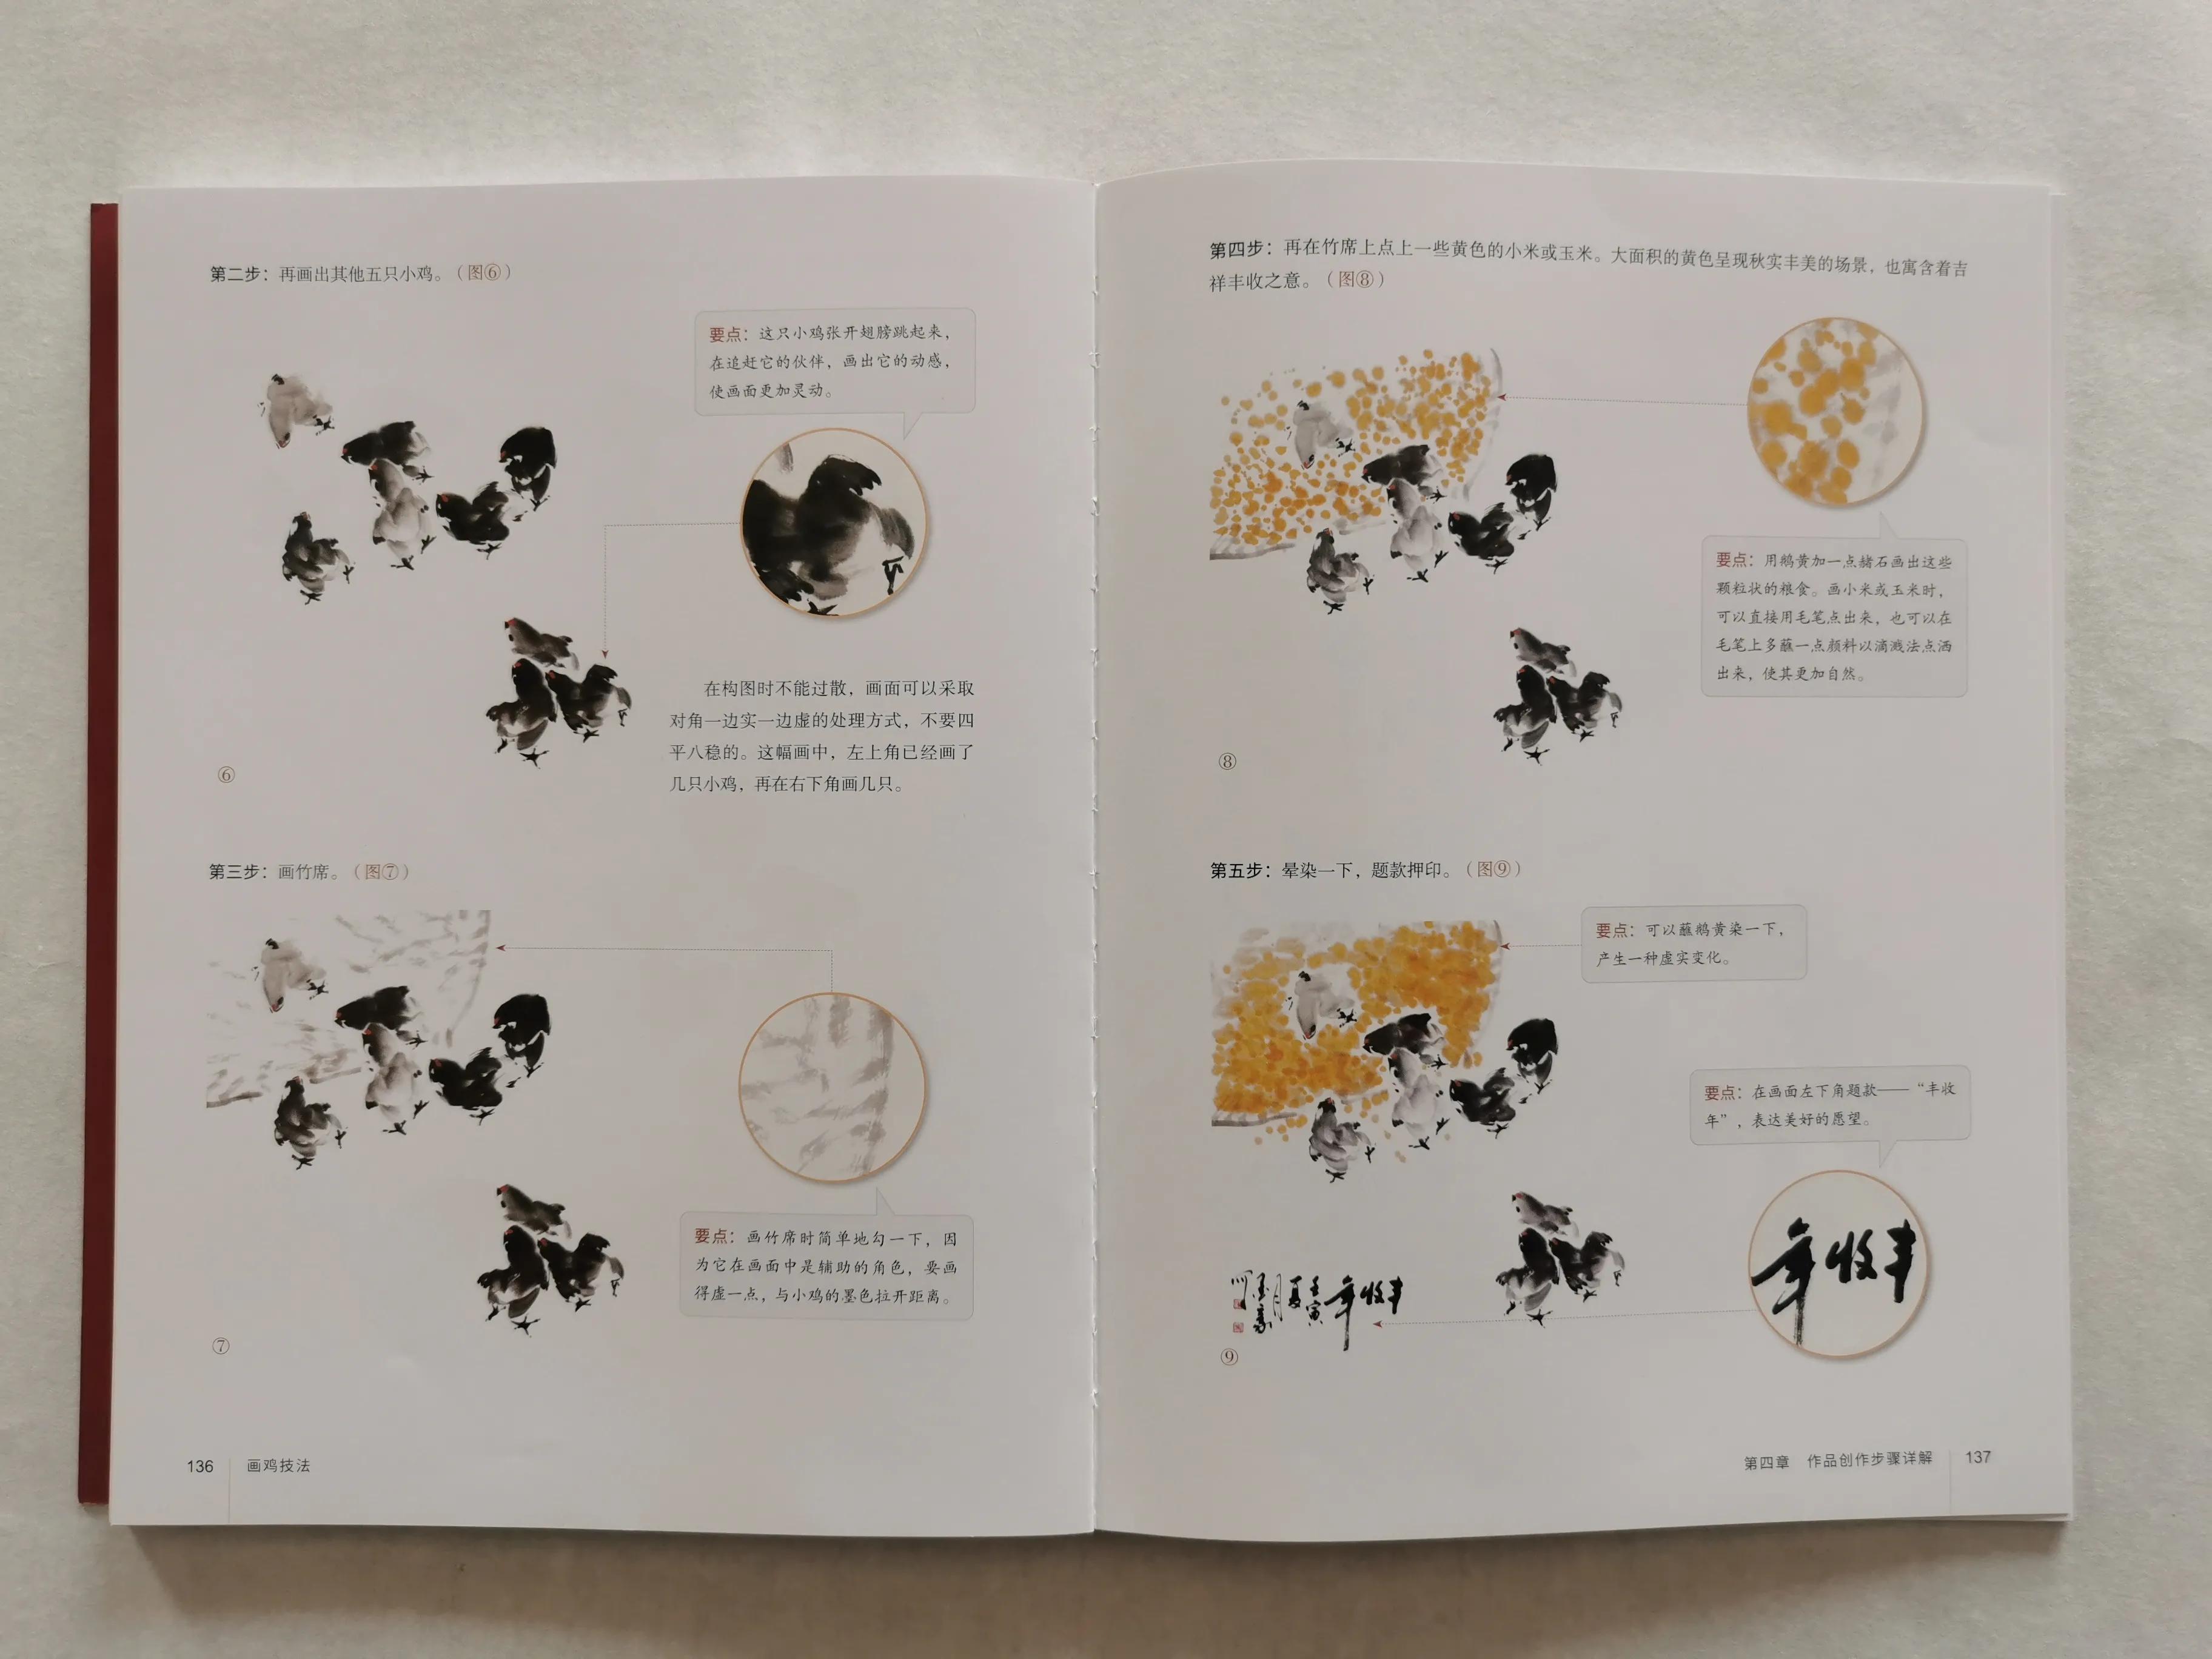 第二步：再画出其他五只小鸡。（图⑥）
要点：这只小鸡张开翅膀跳起来，
在追赶它的伙伴，画出它的动感，
使画面更加灵动。
在构图时不能过散，画面可以采取
对角一边实一边虚的处理方式，不要四
平八稳的。这幅画中，左上角已经画了
几只小鸡，再在右下角画几只。
⑥
第三步：画竹席。（图⑦）
要点：画竹席时简单地勾一下，因
为它在画面中是辅助的角色，要画
得虚一点，与小鸡的墨色拉开距离。
⑦
136 画鸡技法
第四步：再在竹席上点上一些黄色的小米或玉米。大面积的黄色呈现秋实丰美的场景，也寓含着吉
祥丰收之意。（图⑧）
要点：用鹅黄加一点赭石画出这些
颗粒状的粮食。画小米或玉米时，
可以直接用毛笔点出来，也可以在
毛笔上多蘸一点颜料以滴溅法点洒
出来，使其更加自然。
⑧
第五步：晕染一下，题款押印。（图⑨）
要点：可以蘸鹅黄染一下，
产生一种虚实变化。
要点：在画面左下角题款——“丰收
年”，表达美好的愿望。
丰收年
丰收年
壬寅
夏月
⑨
第四章 作品创作步骤详解 137